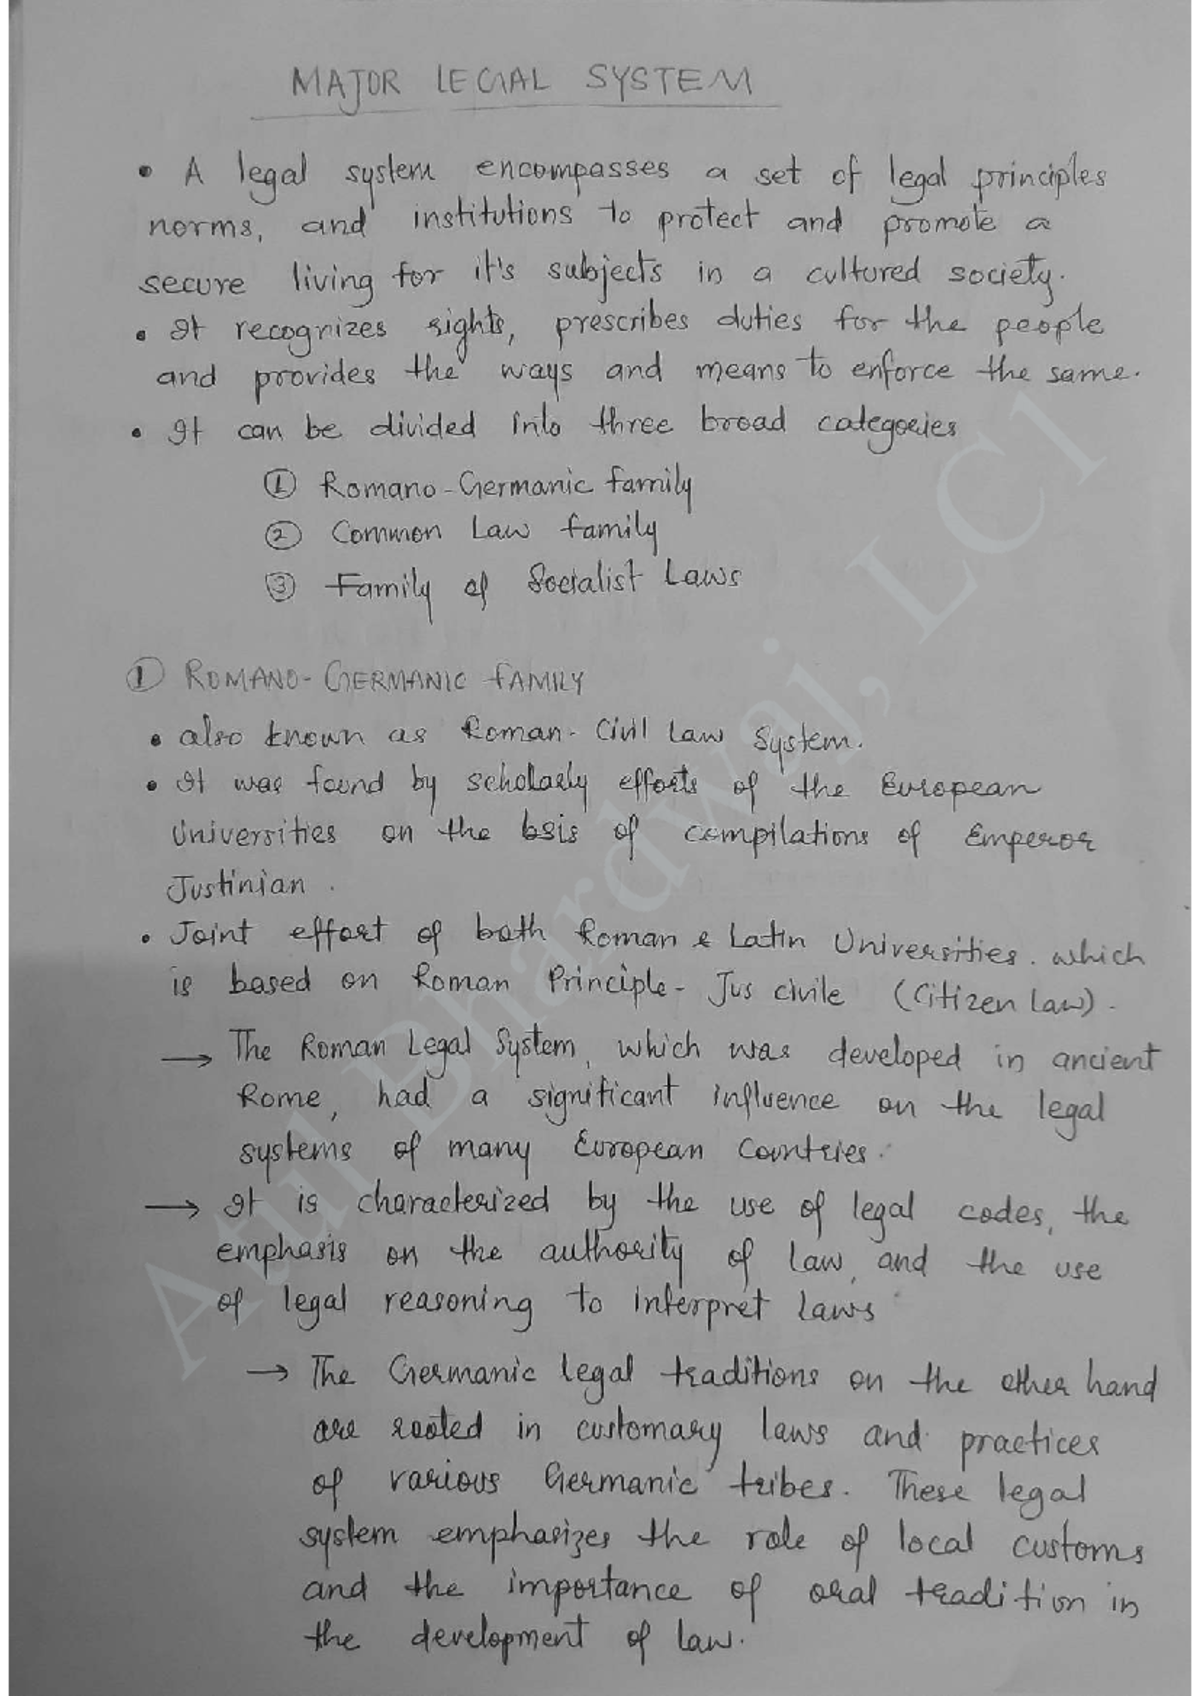 MAJOR LEGAL SYSTEM
• A legal system encompasses a set of legal principles
norms, and institutions to protect and promote a
secure living for it's subjects in a cultured society.
• It recognizes rights, prescribes duties for the people
and provides the ways and means to enforce the same.
• It can be divided into three broad categories
① Romano-Germanic family
② Common Law family
③ Family of Socialist Laws
① ROMANO-GERMANIC FAMILY
• also known as Roman-Civil Law System.
• It was found by scholarly efforts of the European
Universities on the bsis of compilations of Emperor
Justinian.
• Joint effort of both Roman & Latin Universities. which
is based on Roman Principle- Jus civile (Citizen law).
→ The Roman Legal System, which was developed in ancient
Rome, had a significant influence on the legal
systems of many European Countries.
→ It is characterized by the use of legal codes, the
emphasis on the authority of law, and the use
of legal reasoning to interpret laws
→ The Germanic legal traditions on the other hand
are rooted in customary laws and practices
of various Germanic tribes. These legal
system emphasizes the role of local customs
and the importance of oral tradition in
the development of law.
Atul Bhardwaj, LC1